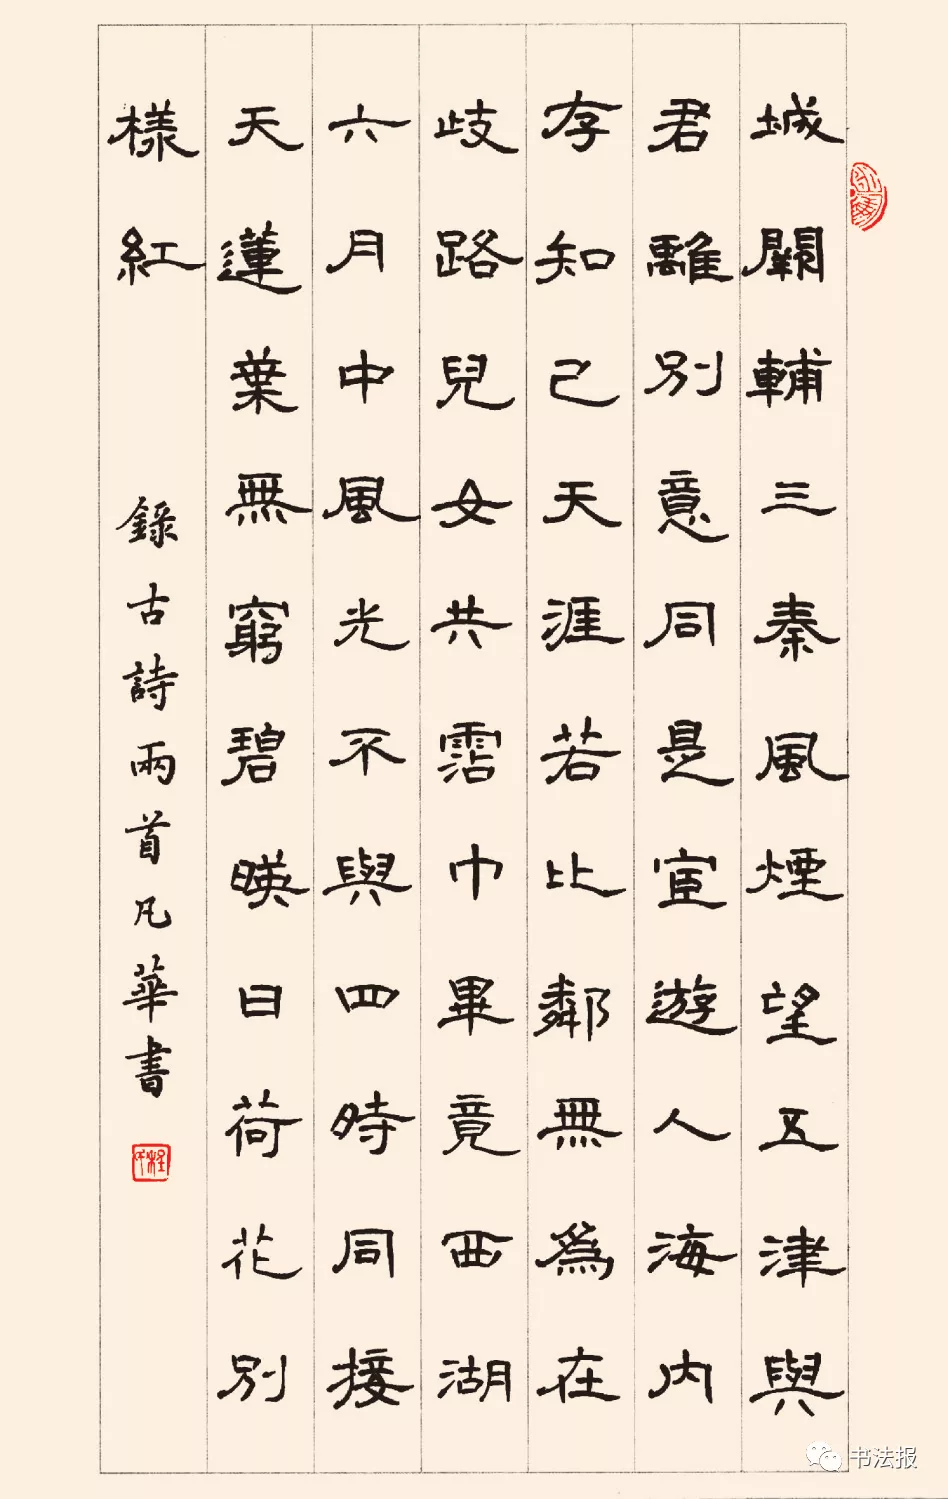 城闕輔三秦風煙望五津與
君離別意同是宦遊人海内
存知己天涯若比鄰無為在
歧路兒女共霑巾畢竟西湖
六月中風光不與四時同接
天蓮葉無窮碧暎日荷花別
樣紅
錄古詩兩首凡華書
书法报